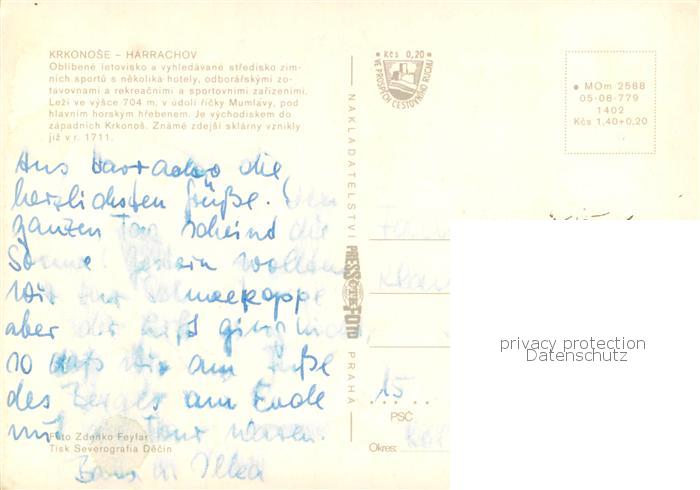 KRKONOŠE – HARRACHOV
Oblíbené letovisko a vyhledávané středisko zim-
ních sportů s několika hotely, odborářskými zo-
tavovnami a rekreačními a sportovními zařízeními.
Leží ve výšce 704 m, v údolí říčky Mumlavy, pod
hlavním horským hřebenem. Je východiskem do
západních Krkonoš. Známé zdejší sklárny vznikly
již v r. 1711.
Aus Harrachov die
herzlichsten Grüße.
ganzen Tag scheind die
Sonne! Gestern wollten
wir zur Schneekoppe
aber der Lift ging nicht,
so daß wir am Fuße
des Berges am Ende
mit Tour waren.
Foto Zdenko Feyfar
Tisk Severografia Děčín
NAKLADATELSTVÍ
PRESSFOTO
PRAHA
• Kčs 0,20 •
VE PROSPĚCH CESTOVNÍHO RUCHU
• MOm 2588
05-08-779
1402
Kčs 1,40+0,20
15
PSČ
Okres:
privacy protection
Datenschutz